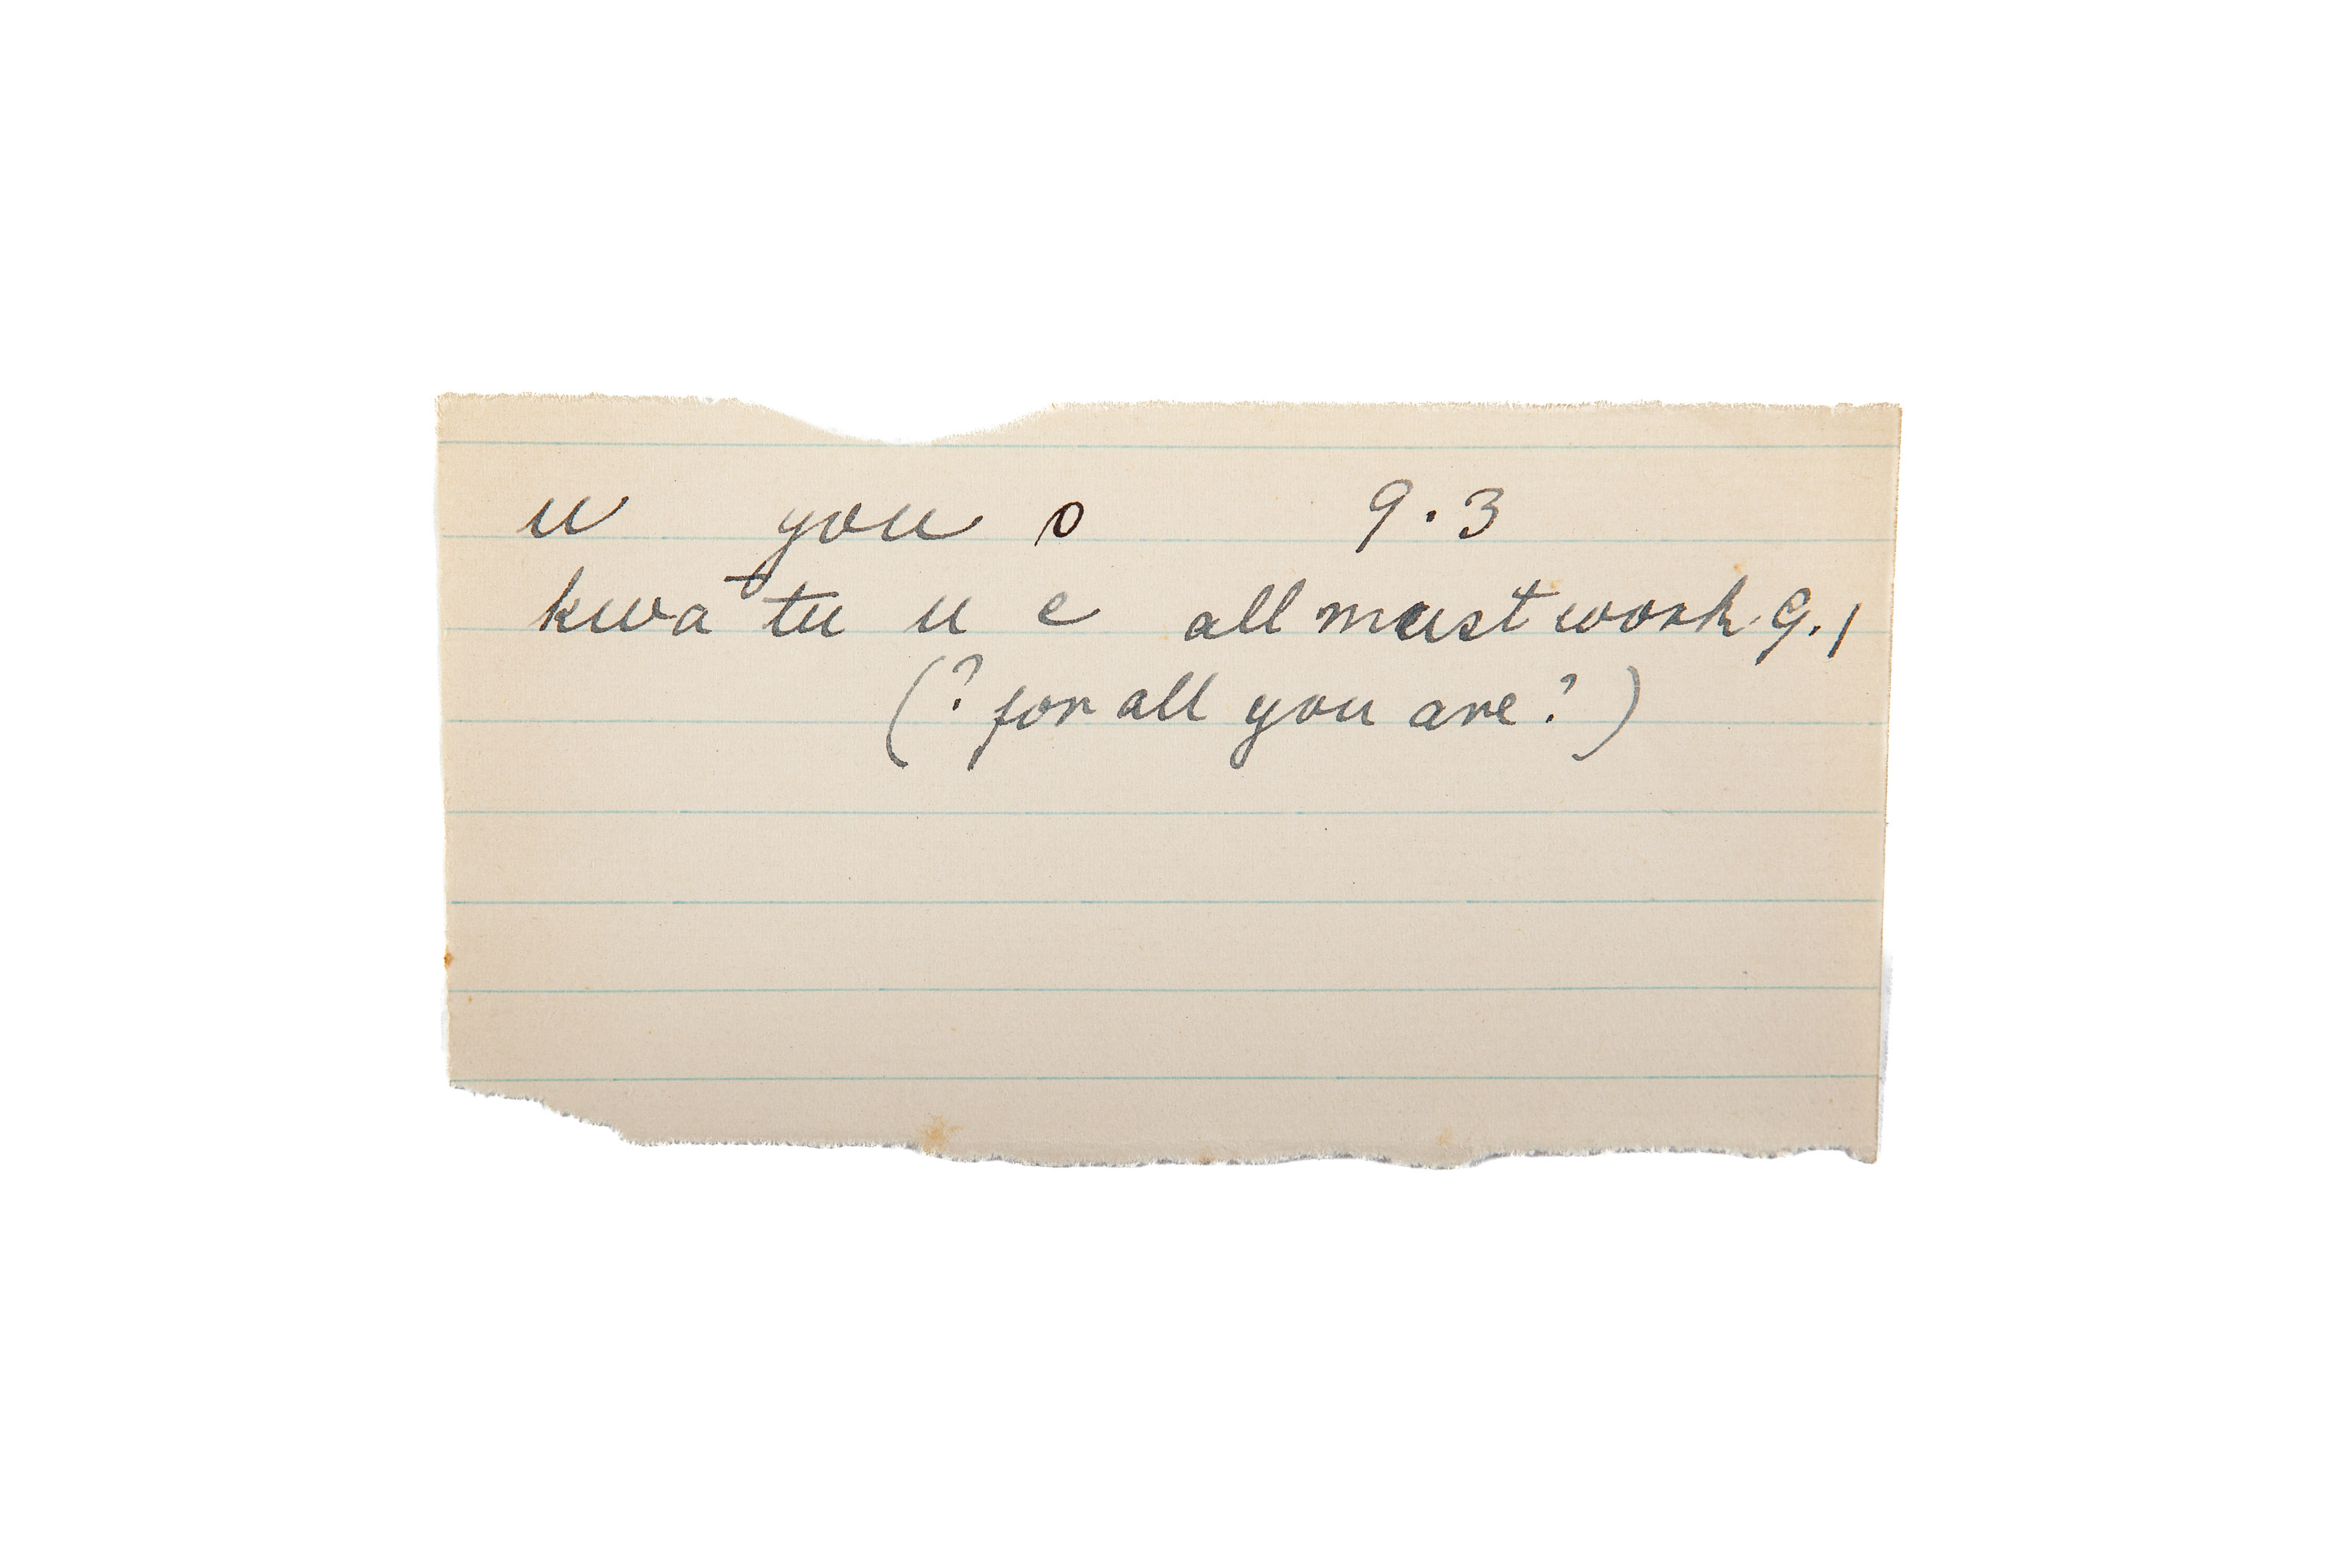 u you o 9.3
kwa tu u e all must work 9.1
(? for all you are? )